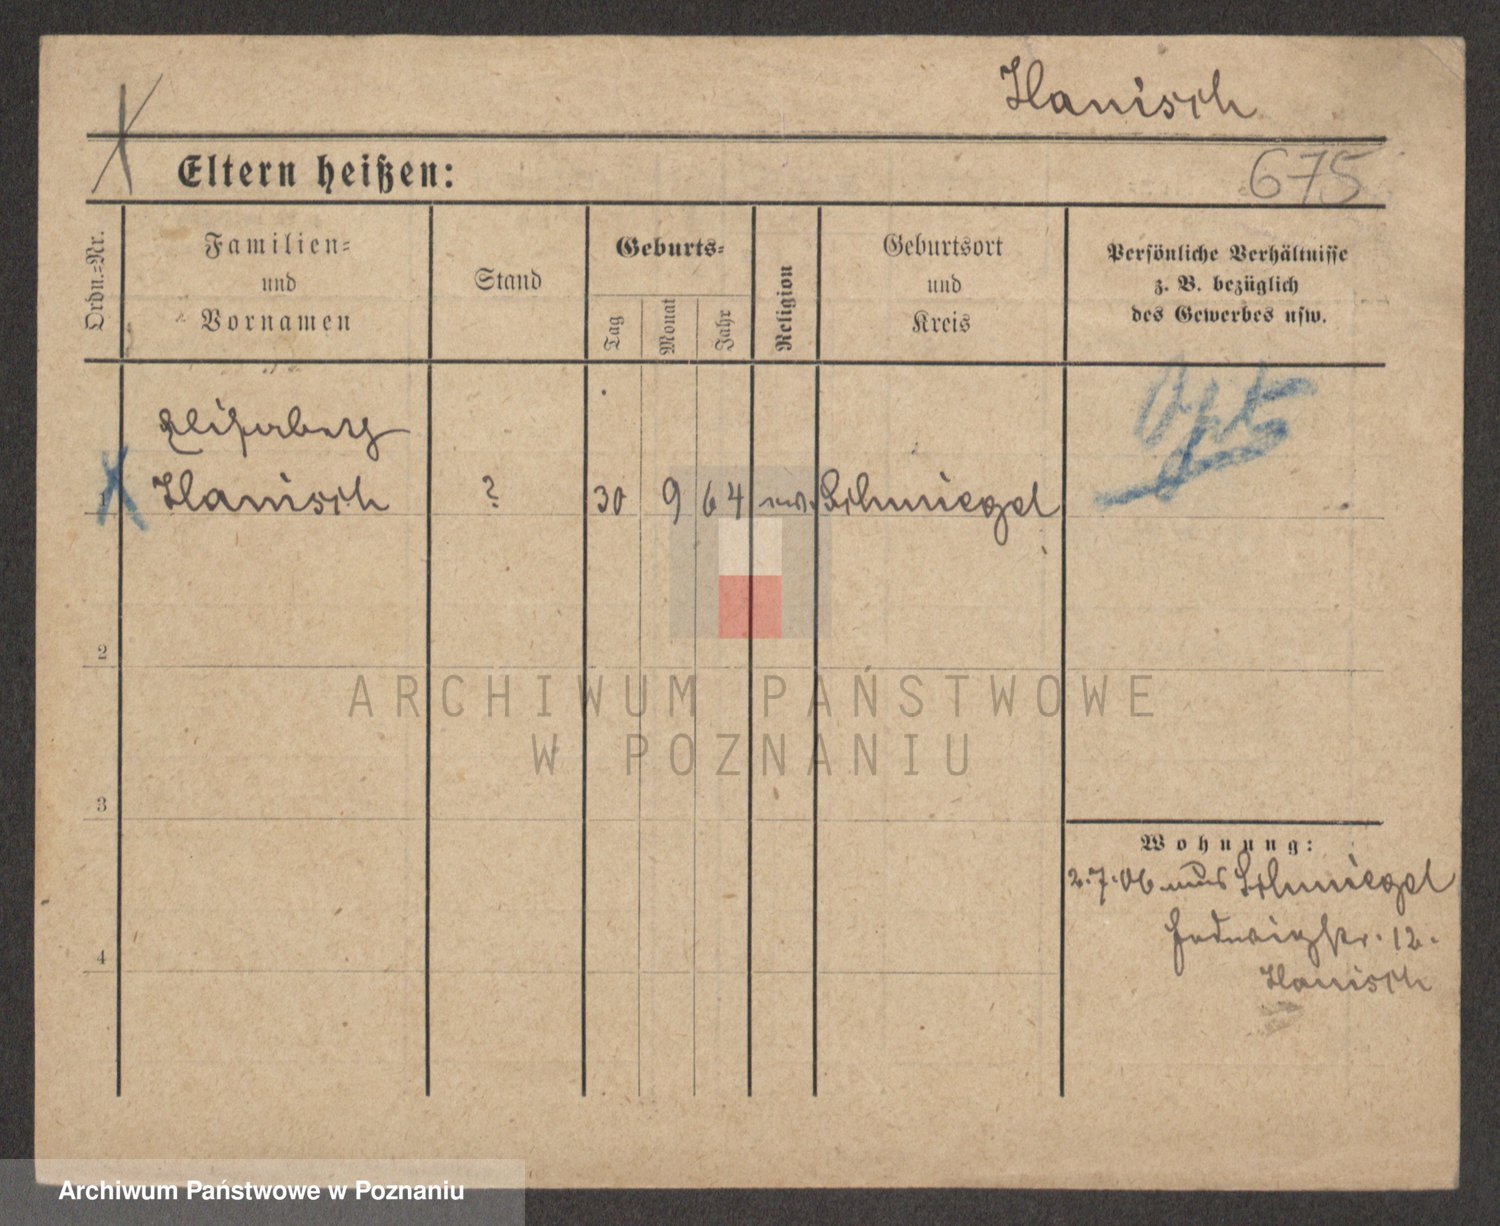 Hanisch
Eltern heißen:
675
Ordn.=Nr.
Familien=
und
Vornamen
Stand
Geburts=
Tag
Monat
Jahr
Religion
Geburtsort
und
Kreis
Persönliche Verhältnisse
z. B. bezüglich
des Gewerbes usw.
1
Hanisch
?
30
9
64
Schmiegel
Opt
2
3
4
Wohnung:
2.7.06 aus Schmiegel
Hedwigstr. 12.
Hanisch
ARCHIWUM PAŃSTWOWE
W POZNANIU
Archiwum Państwowe w Poznaniu